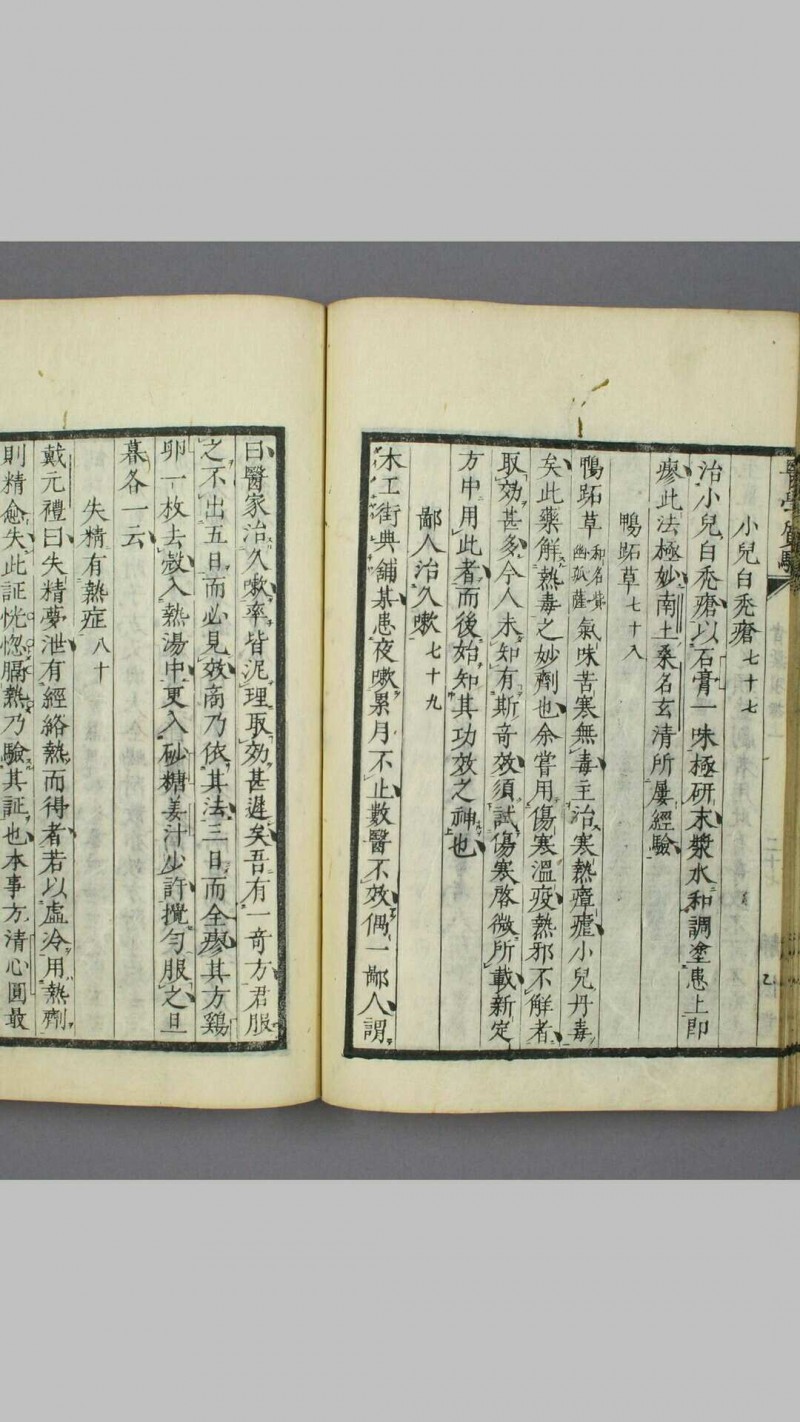 小兒白禿瘡七十七
治小兒白禿瘡以石膏一味極研末漿水和調塗患上即
瘳此法極妙南土桑名玄清所屢經驗
鴨跖草七十八
鴨跖草氣味苦寒無毒主治寒熱瘴瘧小兒丹毒
矣此藥解熱毒之妙劑也余嘗用傷寒溫疫熱邪不解者
取効甚多今人未知有斯奇效須試傷寒啓微所載新定
方中用此者而後始知其功效之神也
鄙人治久嗽七十九
木工街典舖某患夜嗽累月不止數醫不效偶一鄙人謂
曰醫家治久嗽率皆泥理取効甚遲矣吾有一奇方君服
之不出五日而必見效商乃依其法三日而全瘳其方鷄
卵一枚去殼入熱湯中更入砂糖姜汁少許攪勻服之旦
暮各一云
失精有熱症八十
戴元禮曰失精夢泄有經絡熱而得者若以虛冷用熱劑
則精愈失此証恍惚膈熱乃驗其証也本事方清心圓最